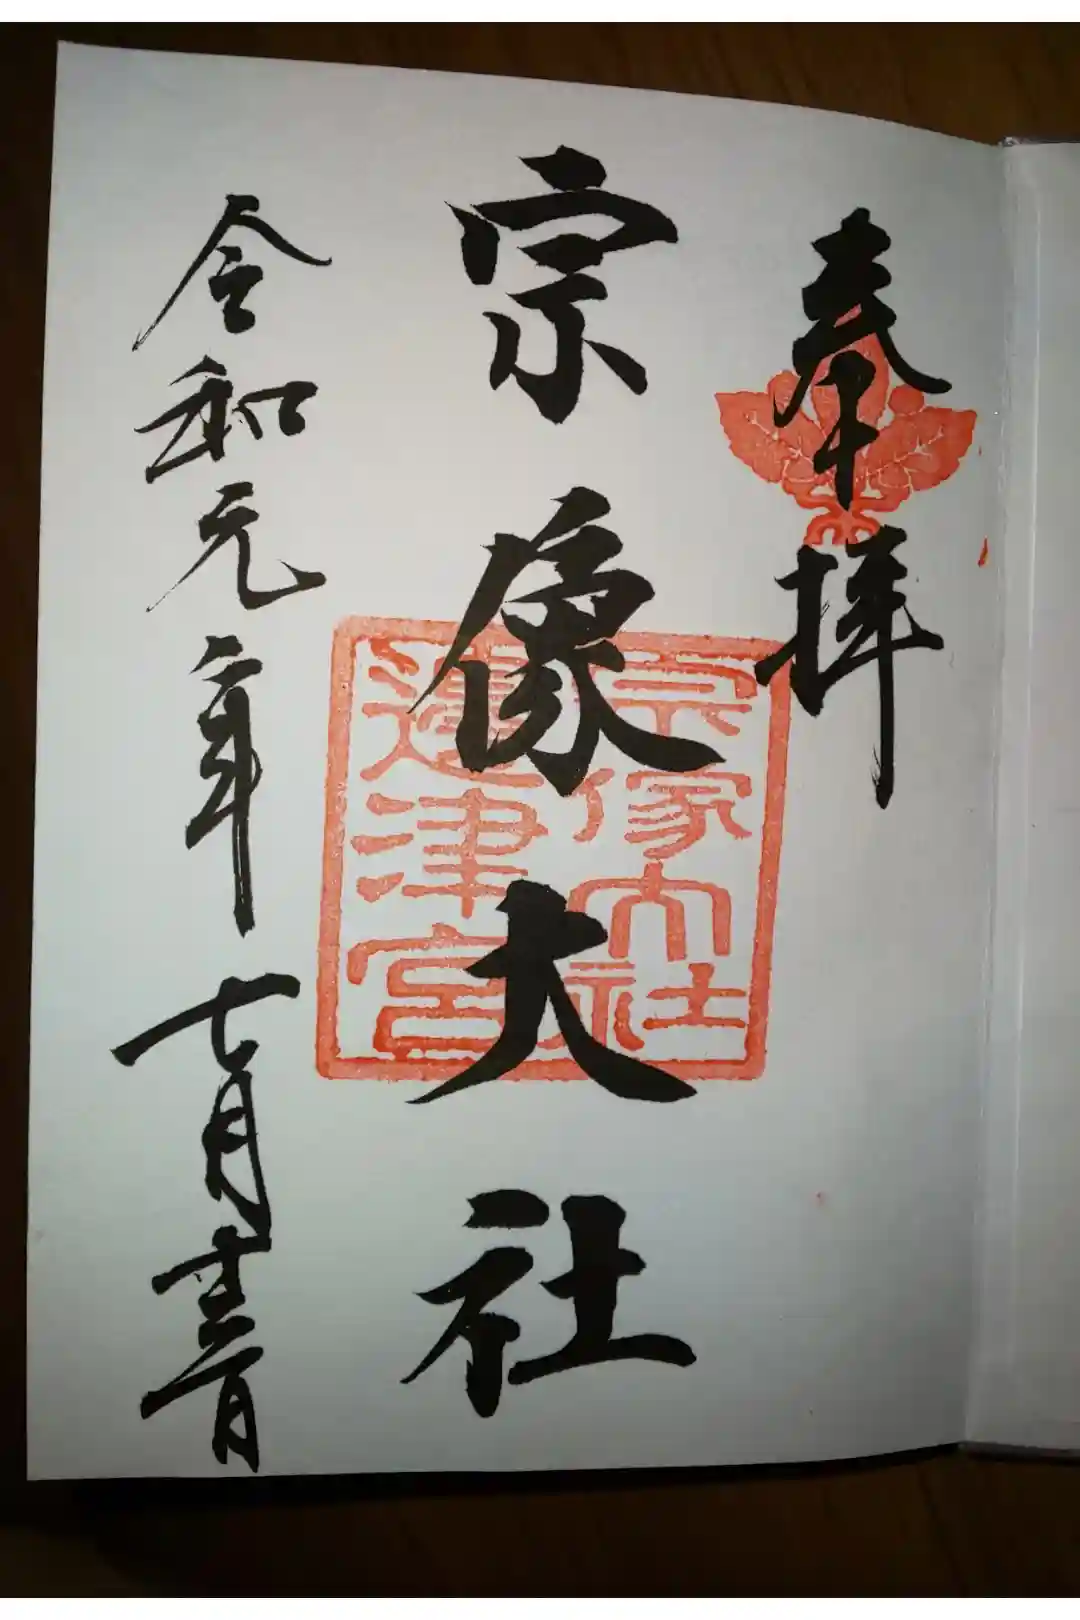 奉拝
宗像大社
宗像大社
邊津宮
令和元年七月日